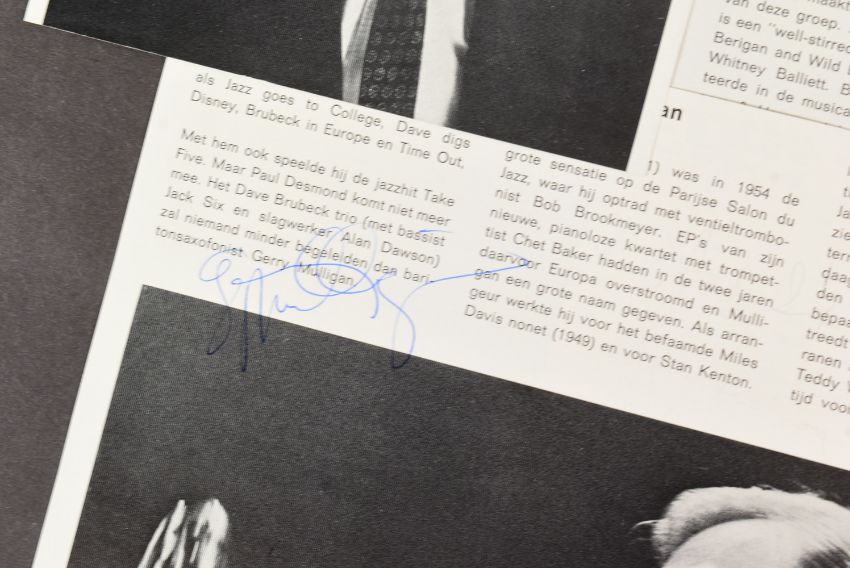 als Jazz goes to College, Dave digs
Disney, Brubeck in Europe en Time Out.
Met hem ook speelde hij de jazzhit Take
Five. Maar Paul Desmond komt niet meer
mee. Het Dave Brubeck trio (met bassist
Jack Six en slagwerker Alan Dawson)
zal niemand minder begeleiden dan bari-
tonsaxofonist Gerry Mulligan.
an
1) was in 1954 de
grote sensatie op de Parijse Salon du
Jazz, waar hij optrad met ventieltrombo-
nist Bob Brookmeyer. EP's van zijn
nieuwe, pianoloze kwartet met trompet-
tist Chet Baker hadden in de twee jaren
daarvoor Europa overstroomd en Mulli-
gan een grote naam gegeven. Als arran-
geur werkte hij voor het befaamde Miles
Davis nonet (1949) en voor Stan Kenton.
van deze groep.
is een "well-stirred
Berigan and Wild
Whitney Balliett. B
teerde in de musica
Ja
zie
tern
daag
den
bepaa
treedt
ranen
Teddy
tijd voo